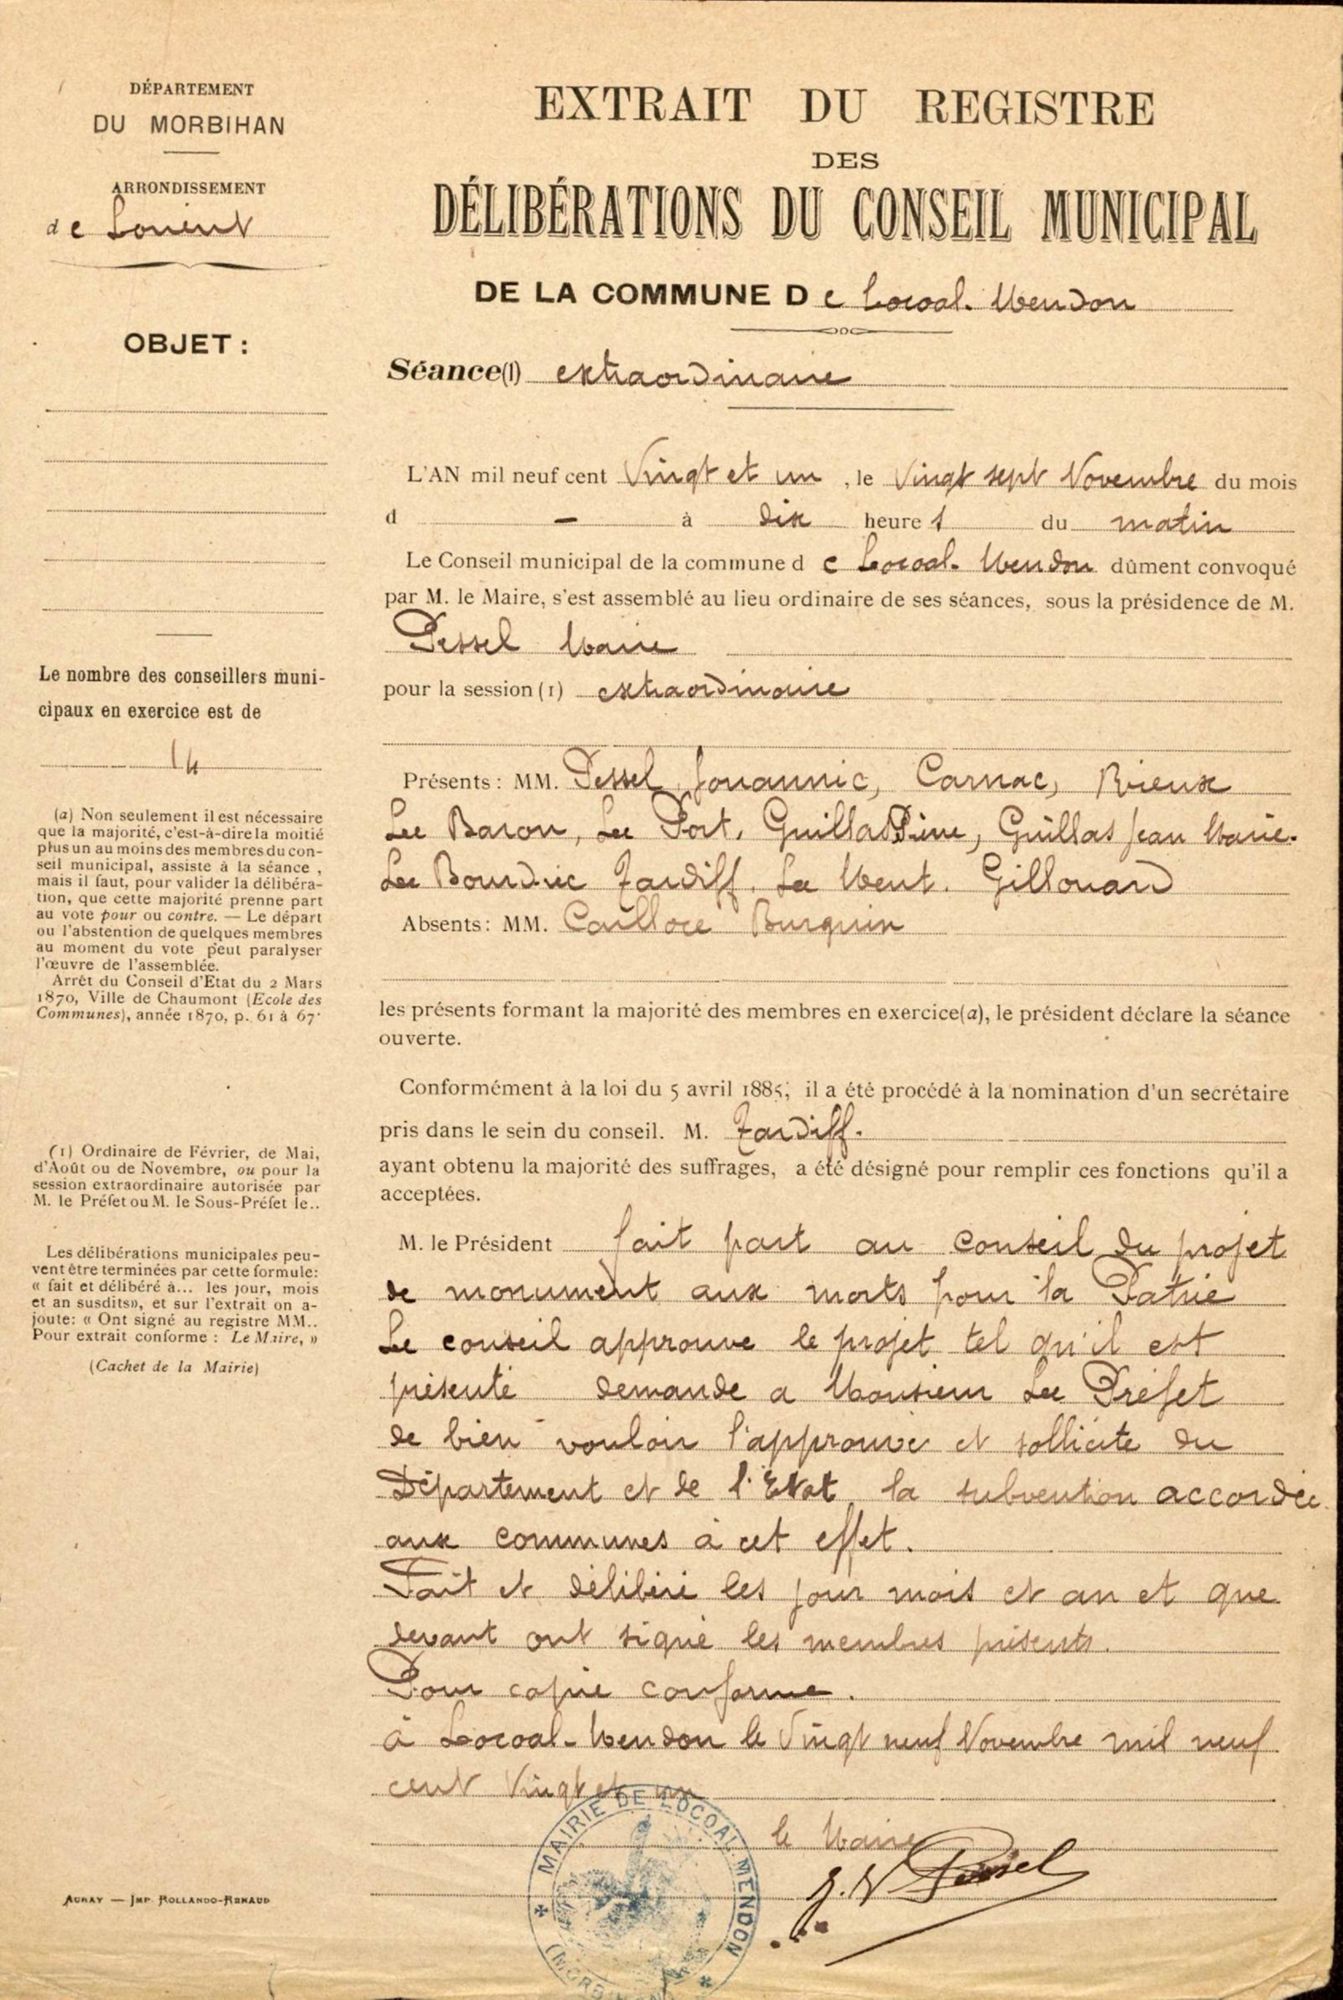 DÉPARTEMENT
DU MORBIHAN
ARRONDISSEMENT
de Lorient
OBJET :
Le nombre des conseillers muni-
cipaux en exercice est de
14
(a) Non seulement il est nécessaire
que la majorité, c'est-à-dire la moitié
plus un au moins des membres du con-
seil municipal, assiste à la séance,
mais il faut, pour valider la délibéra-
tion, que cette majorité prenne part
au vote pour ou contre. — Le départ
ou l'abstention de quelques membres
au moment du vote peut paralyser
l'œuvre de l'assemblée.
Arrêt du Conseil d'Etat du 2 Mars
1870, Ville de Chaumont (Ecole des
Communes), année 1870, p. 61 à 67.
(1) Ordinaire de Février, de Mai,
d'Août ou de Novembre, ou pour la
session extraordinaire autorisée par
M. le Préfet ou M. le Sous-Préfet le..
Les délibérations municipales peu-
vent être terminées par cette formule:
« fait et délibéré à... les jour, mois
et an susdits», et sur l'extrait on a-
joute: « Ont signé au registre MM..
Pour extrait conforme : Le Maire, »
(Cachet de la Mairie)
AURAY — IMP. ROLLANDO-RENAUD
EXTRAIT DU REGISTRE
DES
DÉLIBÉRATIONS DU CONSEIL MUNICIPAL
DE LA COMMUNE De Locoal-Mendon
Séance(1) extraordinaire
L'AN mil neuf cent Vingt et un, le Vingt sept Novembre du mois
d — à dix heures du matin
Le Conseil municipal de la commune de Locoal-Mendon dûment convoqué
par M. le Maire, s'est assemblé au lieu ordinaire de ses séances, sous la présidence de M.
Pessel Maire
pour la session (1) extraordinaire
Présents : MM. Pessel, Jouannic, Carnac, Rieux
Le Baron, Le Port, Guillas Pierre, Guillas Jean Marie.
Le Bourdiec Tardiff. Le Ment. Gillouard
Absents : MM. Cailloce Burguin
les présents formant la majorité des membres en exercice(a), le président déclare la séance
ouverte.
Conformément à la loi du 5 avril 1885, il a été procédé à la nomination d'un secrétaire
pris dans le sein du conseil. M. Tardiff.
ayant obtenu la majorité des suffrages, a été désigné pour remplir ces fonctions qu'il a
acceptées.
M. le Président fait part au conseil du projet
de monument aux morts pour la Patrie
Le conseil approuve le projet tel qu'il est
présenté demande a Monsieur Le Préfet
de bien vouloir l'approuvé et sollicite du
Département et de l'Etat la subvention accordée
aux communes à cet effet.
Fait et délibéré les jour mois et an et que
devant ont signé les membres présents.
Pour copie conforme.
à Locoal-Mendon le Vingt neuf Novembre mil neuf
cent Vingt et un
le Maire
J. V. Pessel
MAIRIE DE LOCOAL-MENDON
(MORBIHAN)